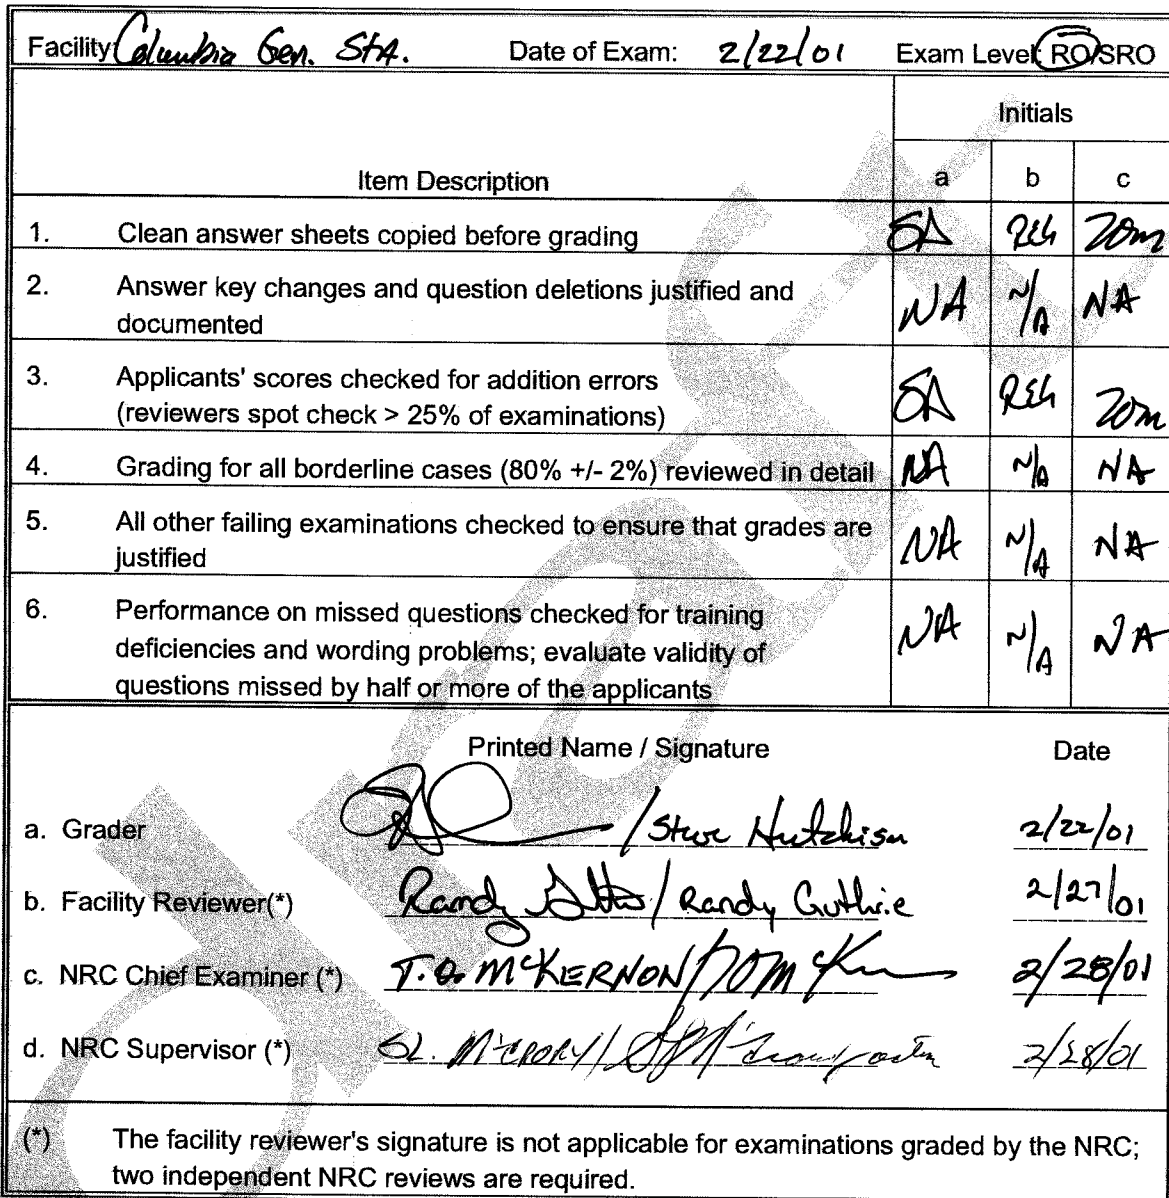 Facility: Columbia Gen. StA. Date of Exam: 2/22/01 Exam Level: RO/SRO
Initials
Item Description a b c
1. Clean answer sheets copied before grading REG TOM
2. Answer key changes and question deletions justified and NA N/A NA
documented
3. Applicants' scores checked for addition errors REG TOM
(reviewers spot check > 25% of examinations)
4. Grading for all borderline cases (80% +/- 2%) reviewed in detail NA N/A NA
5. All other failing examinations checked to ensure that grades are NA N/A NA
justified
6. Performance on missed questions checked for training NA N/A NA
deficiencies and wording problems; evaluate validity of
questions missed by half or more of the applicants
Printed Name / Signature Date
a. Grader / Steve Hutchison 2/22/01
b. Facility Reviewer(*) Randy Guthrie / Randy Guthrie 2/27/01
c. NRC Chief Examiner (*) T.O. McKERNON / TOM 2/28/01
d. NRC Supervisor (*) SL. McCRORY / 2/28/01
(*) The facility reviewer's signature is not applicable for examinations graded by the NRC;
two independent NRC reviews are required.
draft